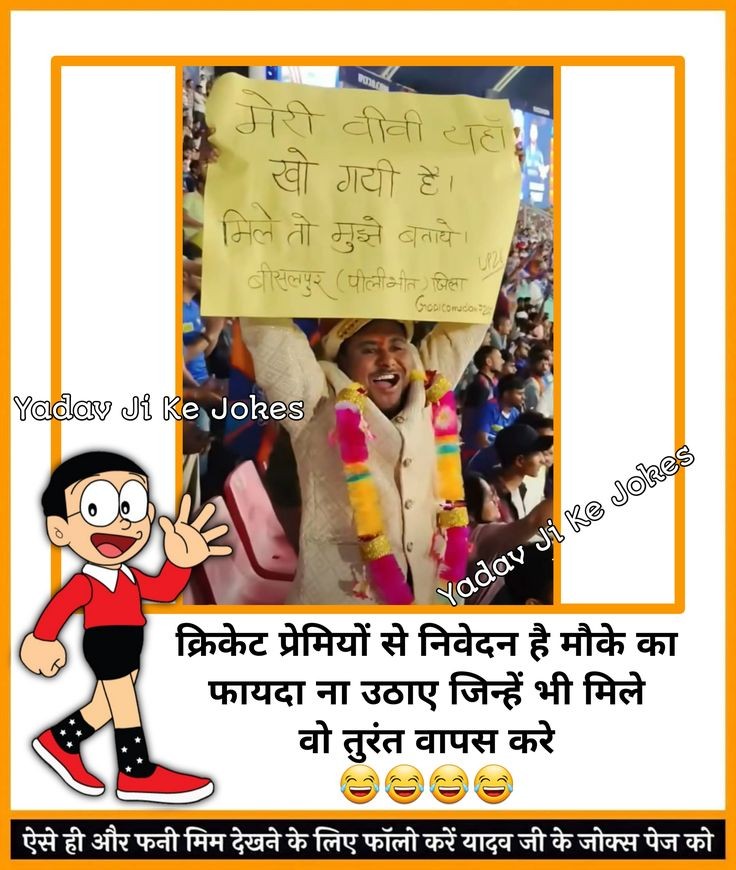 मेरी वीवी यहाँ
खो गयी है।
मिले तो मुझे बताये।
बीसलपुर (पीलीभीत) जिला
Yadav Ji Ke Jokes
Yadav Ji Ke Jokes
क्रिकेट प्रेमियों से निवेदन है मौके का
फायदा ना उठाए जिन्हें भी मिले
वो तुरंत वापस करे
ऐसे ही और फनी मिम देखने के लिए फॉलो करें यादव जी के जोक्स पेज को